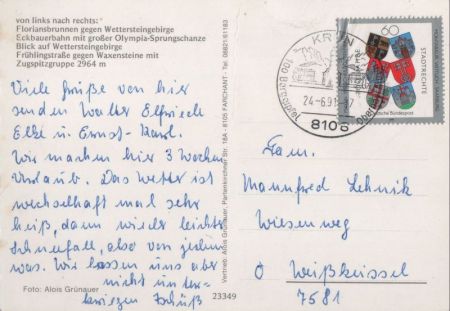 von links nach rechts:
Floriansbrunnen gegen Wettersteingebirge
Eckbauerbahn mit großer Olympia-Sprungschanze
Blick auf Wettersteingebirge
Frühlingstraße gegen Waxensteine mit
Zugspitzgruppe 2964 m
Viele Grüße von hier
senden Walter Elfriede
Elke u Ernst-Karl.
Wir machen hier 3 Wochen
Urlaub. Das Wetter ist
wechselhaft mal sehr
heiß, dann wieder leichter
Schneefall, also von jedem
was. Wir lassen uns aber
nicht unter-
kriegen Tschüß
Foto: Alois Grünauer
23349
Vertrieb: Alois Grünauer, Partenkirchner Str. 16A - 8105 FARCHANT - Tel. 08821/61183
KRÜN
24-6.91-17
8108
60
STADTRECHTE
Deutsche Bundespost
Fam.
Mannfred Lehnik
Wiesenweg
O Weißkeissel
7581